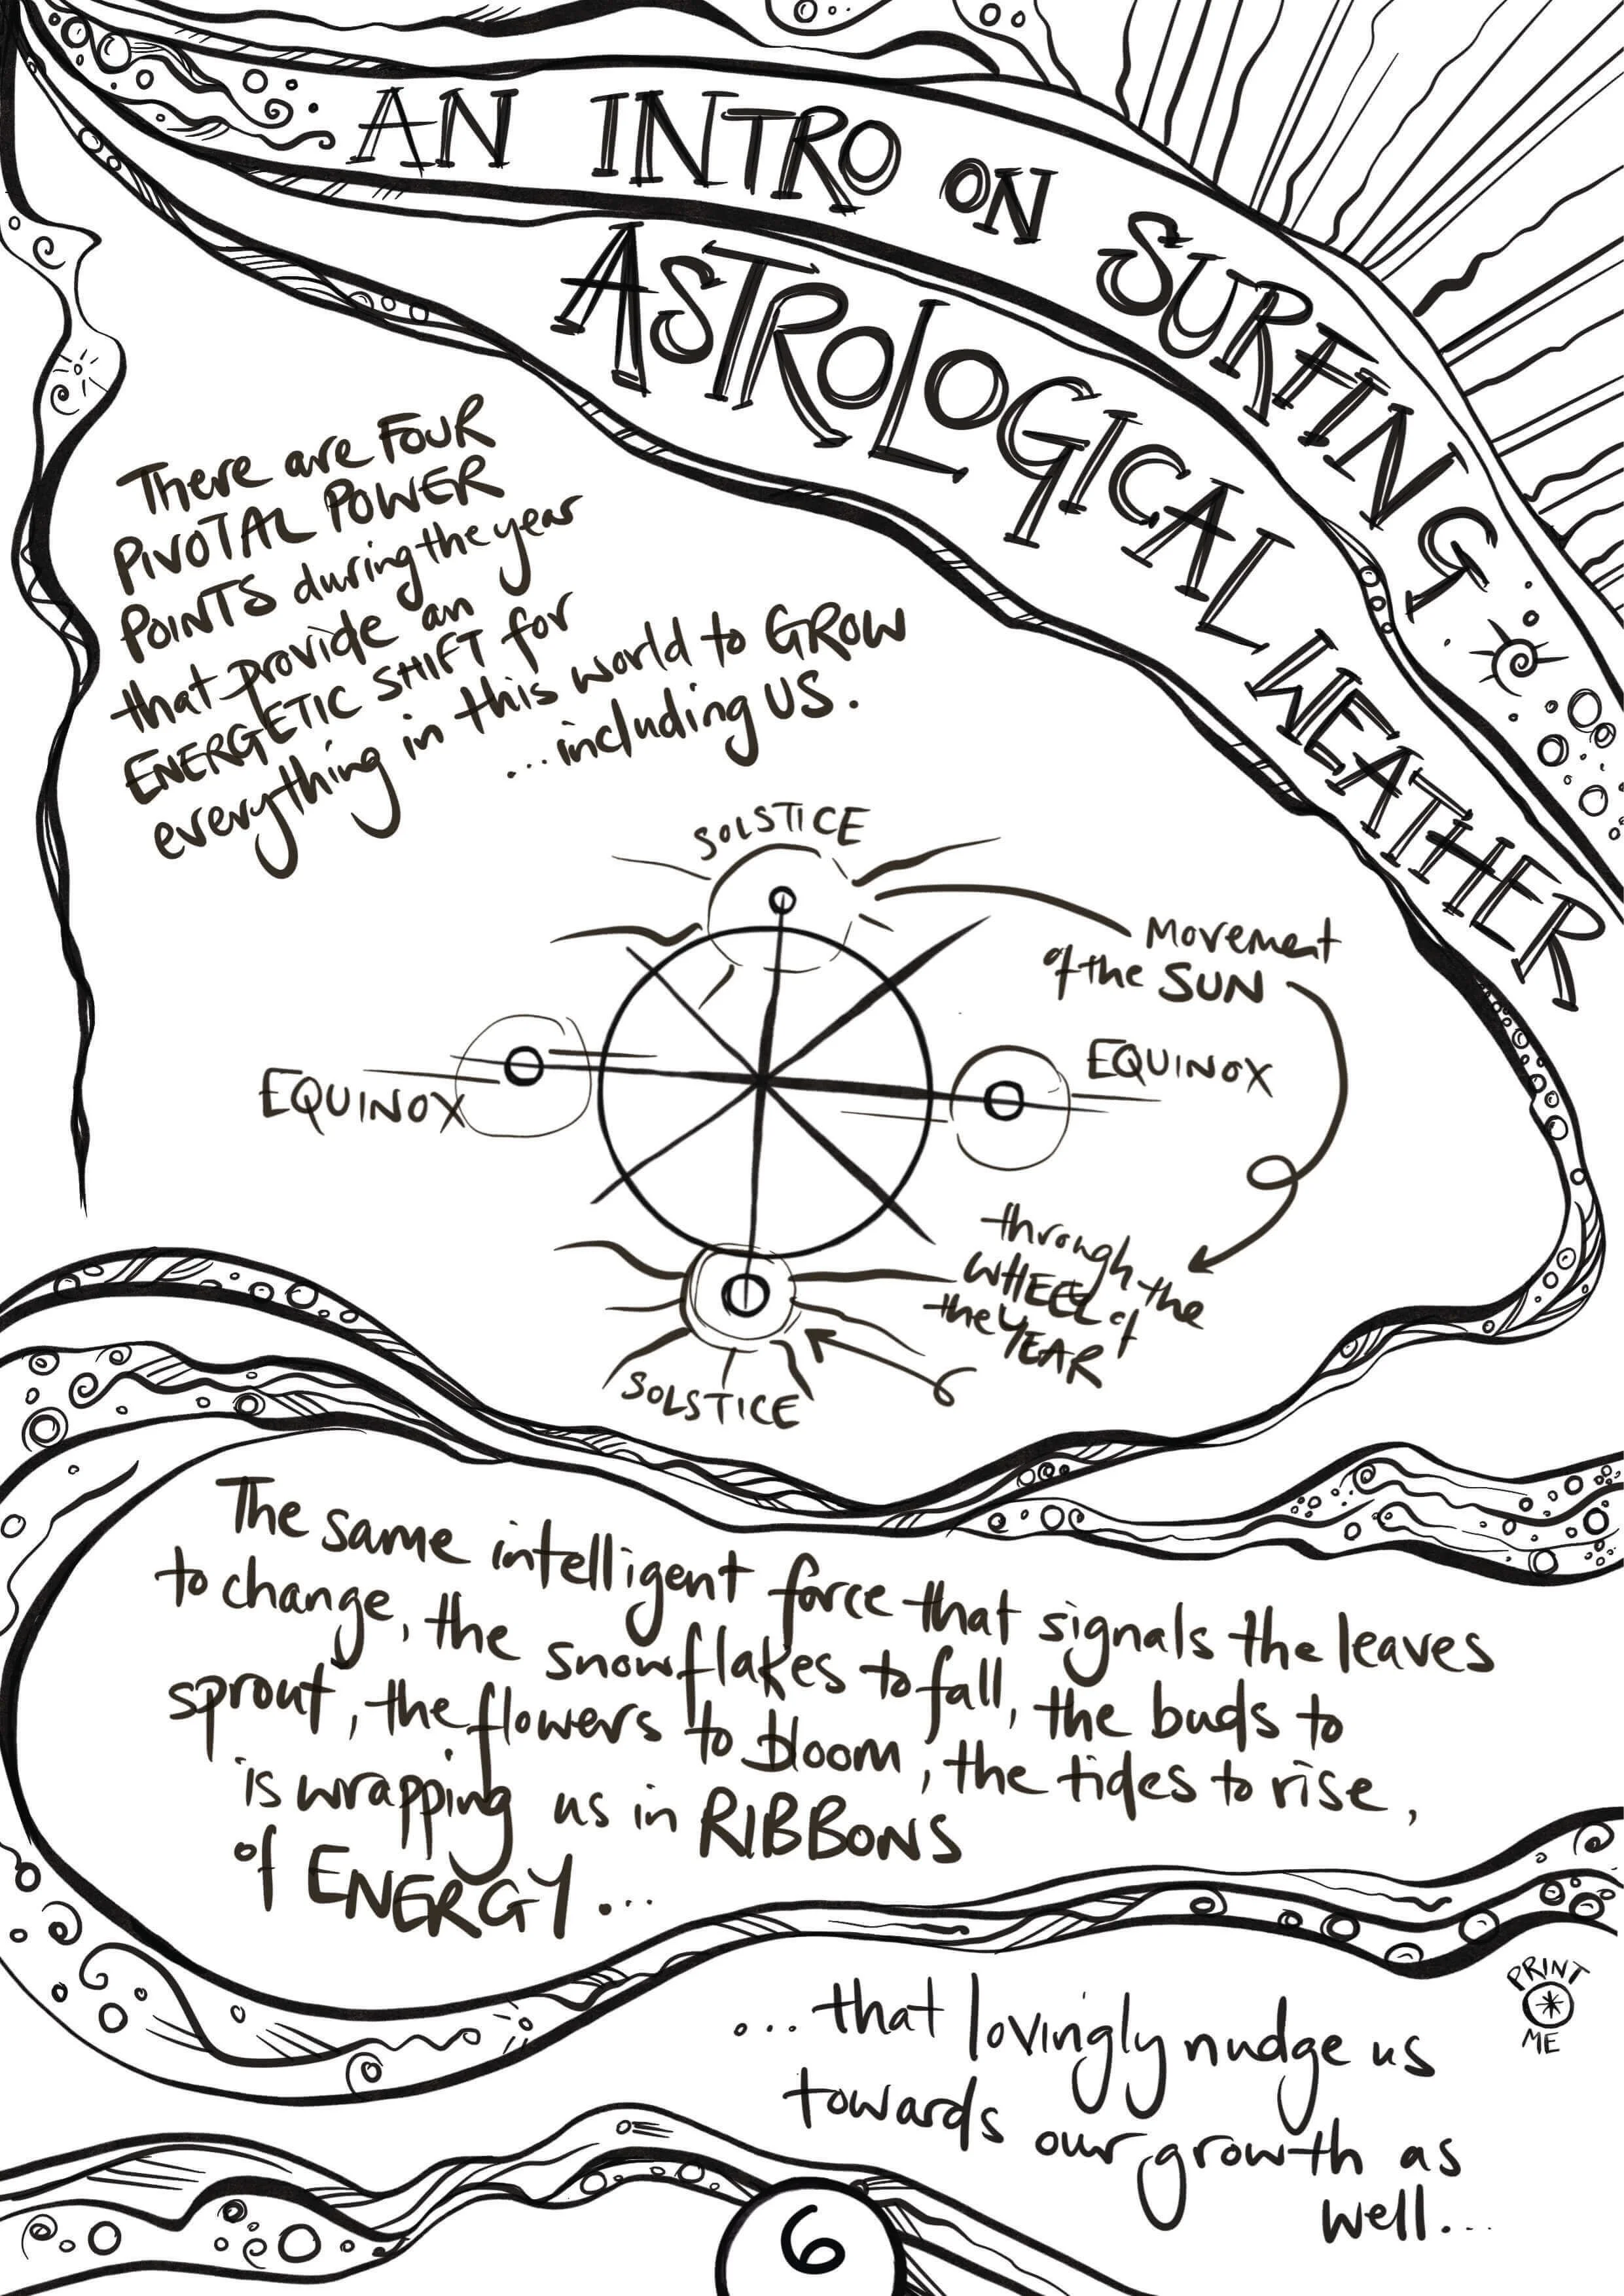 AN INTRO ON SURFING
ASTROLOGICAL WEATHER
There are FOUR
PIVOTAL POWER
POINTS during the year
that provide an
ENERGETIC SHIFT for
everything in this world to GROW
...including US.
SOLSTICE
Movement
of the SUN
EQUINOX
EQUINOX
through the
WHEEL of
the YEAR
SOLSTICE
The same intelligent force that signals the leaves
to change, the snowflakes to fall, the buds to
sprout, the flowers to bloom, the tides to rise,
is wrapping us in RIBBONS
of ENERGY...
PRINT
ME
...that lovingly nudge us
towards our growth as
well...
6